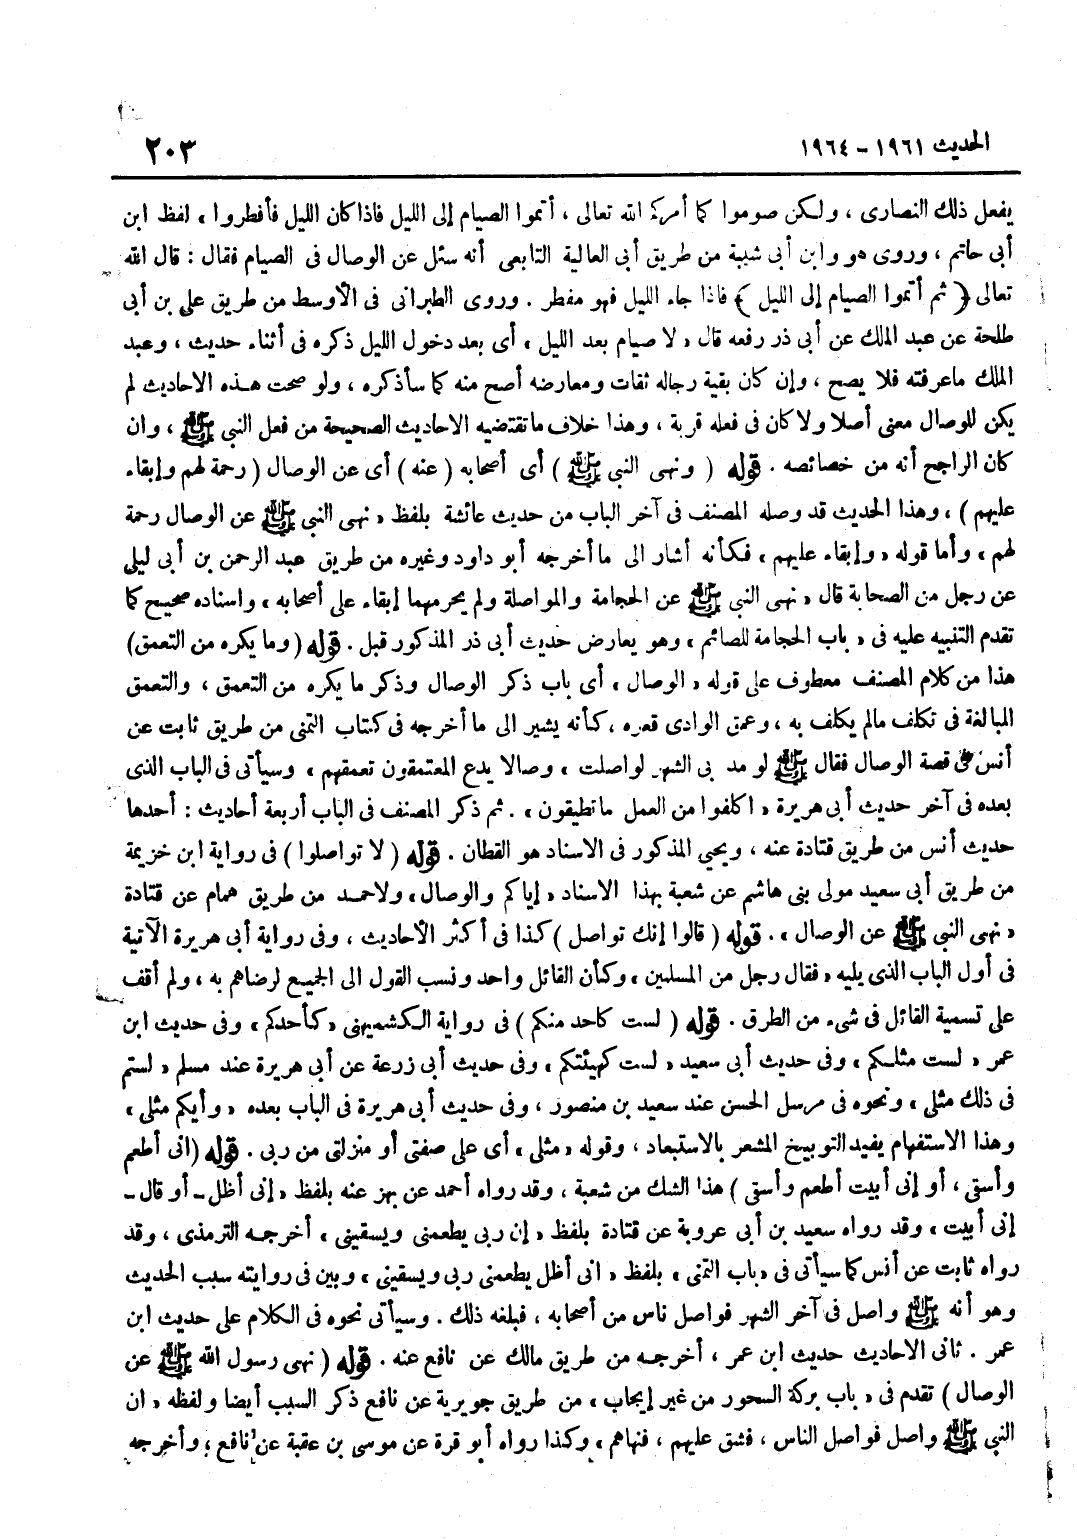 الحديث ١٩٦١ - ١٩٦٤
٢٠٣
يفعل ذلك النصارى ، ولكن صوموا كما أمركم الله تعالى ، أتموا الصيام إلى الليل فاذا كان الليل فأفطروا » لفظ ابن
أبى حاتم ، وروى هو وابن أبى شيبة من طريق أبى العالية التابعى أنه سئل عن الوصال فى الصيام فقال : قال الله
تعالى ﴿ ثم أتموا الصيام إلى الليل ﴾ فاذا جاء الليل فهو مفطر . وروى الطبرانى فى الأوسط من طريق على بن أبى
طلحة عن عبد الملك عن أبى ذر رفعه قال « لا صيام بعد الليل » أى بعد دخول الليل ذكره فى أثناء حديث ، وعبد
الملك ماعرفته فلا يصح ، وإن كان بقية رجاله ثقات ومعارضه أصح منه كما سأذكره ، ولو صحت هذه الاحاديث لم
يكن للوصال معنى أصلا ولا كان فى فعله قربة ، وهذا خلاف ماتقتضيه الاحاديث الصحيحة من فعل النبى ﷺ ، وان
كان الراجح أنه من خصائصه . قوله ( ونهى النبى ﷺ ) أى أصحابه ( عنه ) أى عن الوصال ( رحمة لهم وإبقاء
عليهم ) ، وهذا الحديث قد وصله المصنف فى آخر الباب من حديث عائشة بلفظ « نهى النبى ﷺ عن الوصال رحمة
لهم » وأما قوله « وإبقاء عليهم » فكأنه أشار الى ما أخرجه أبو داود وغيره من طريق عبد الرحمن بن أبى ليلى
عن رجل من الصحابة قال « نهى النبى ﷺ عن الحجامة والمواصلة ولم يحرمهما إبقاء على أصحابه » واسناده صحيح كما
تقدم التنبيه عليه فى « باب الحجامة للصائم » وهو يعارض حديث أبى ذر المذكور قبل . قوله ( وما يكره من التعمق )
هذا من كلام المصنف معطوف على قوله « الوصال » أى باب ذكر الوصال وذكر ما يكره من التعمق ، والتعمق
المبالغة فى تكلف مالم يكلف به ، وعمق الوادى قعره ، كأنه يشير الى ما أخرجه فى كتاب التمنى من طريق ثابت عن
أنس فى قصة الوصال فقال ﷺ لو مد بى الشهر لواصلت « وصالا يدع المعتمقون تعمقهم » وسيأتى فى الباب الذى
بعده فى آخر حديث أبى هريرة « اكلفوا من العمل ماتطيقون » . ثم ذكر المصنف فى الباب أربعة أحاديث : أحدها
حديث أنس من طريق قتادة عنه ، ويحيى المذكور فى الاسناد هو القطان . قوله ( لا تواصلوا ) فى رواية ابن خزيمة
من طريق أبى سعيد مولى بنى هاشم عن شعبة بهذا الاسناد « إياكم والوصال » ولاحمد من طريق همام عن قتادة
« نهى النبى ﷺ عن الوصال » . قوله ( قالوا إنك تواصل ) كذا فى أكثر الأحاديث ، وفى رواية أبى هريرة الآتية
فى أول الباب الذى يليه « فقال رجل من المسلمين » وكأن القائل واحد ونسب القول الى الجميع لرضاهم به ، ولم أقف
على تسمية القائل فى شىء من الطرق . قوله ( لست كاحد منكم ) فى رواية الكشميهنى « كأحدكم » وفى حديث ابن
عمر « لست مثلكم » وفى حديث أبى سعيد « لست كهيئتكم » وفى حديث أبى زرعة عن أبى هريرة عند مسلم « لستم
فى ذلك مثلى » ونحوه فى مرسل الحسن عند سعيد بن منصور ، وفى حديث أبى هريرة فى الباب بعده « وأيكم مثلى »
وهذا الاستفهام يفيد التوبيخ المشعر بالاستبعاد ، وقوله « مثلى » أى على صفتى أو منزلتى من ربى . قوله ( انى أطعم
وأسقى ، أو إنى أبيت أطعم وأسقى ) هذا الشك من شعبة ، وقد رواه أحمد عن بهز عنه بلفظ « إنى أظل - أو قال -
إنى أبيت » وقد رواه سعيد بن أبى عروبة عن قتادة بلفظ « إن ربى يطعمنى ويسقينى » أخرجه الترمذى ، وقد
رواه ثابت عن أنس كما سيأتى فى « باب التمنى » بلفظ « انى أظل يطعمنى ربى ويسقينى » وبين فى روايته سبب الحديث
وهو أنه ﷺ واصل فى آخر الشهر فواصل ناس من أصحابه ، فبلغه ذلك . وسيأتى نحوه فى الكلام على حديث ابن
عمر . ثانى الاحاديث حديث ابن عمر ، أخرجه من طريق مالك عن نافع عنه . قوله ( نهى رسول الله ﷺ عن
الوصال ) تقدم فى « باب بركة السحور من غير إيجاب » من طريق جويرية عن نافع ذكر السبب أيضا ولفظه « ان
النبى ﷺ واصل فواصل الناس ، فشق عليهم ، فنهاهم » وكذا رواه أبو قرة عن موسى بن عقبة عن نافع ، وأخرجه